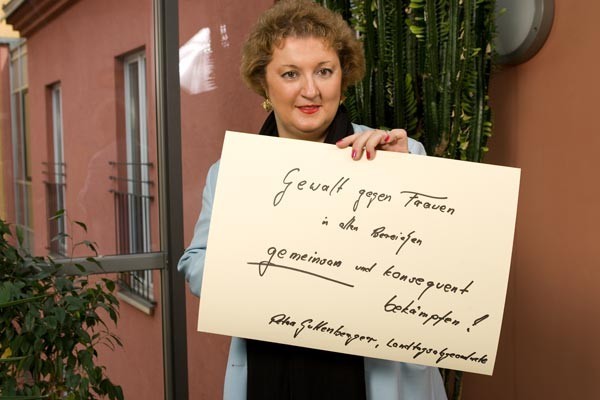 Gewalt gegen Frauen
in allen Bereichen
gemeinsam und konsequent
bekämpfen!
Petra Guttenberger, Landtagsabgeordnete